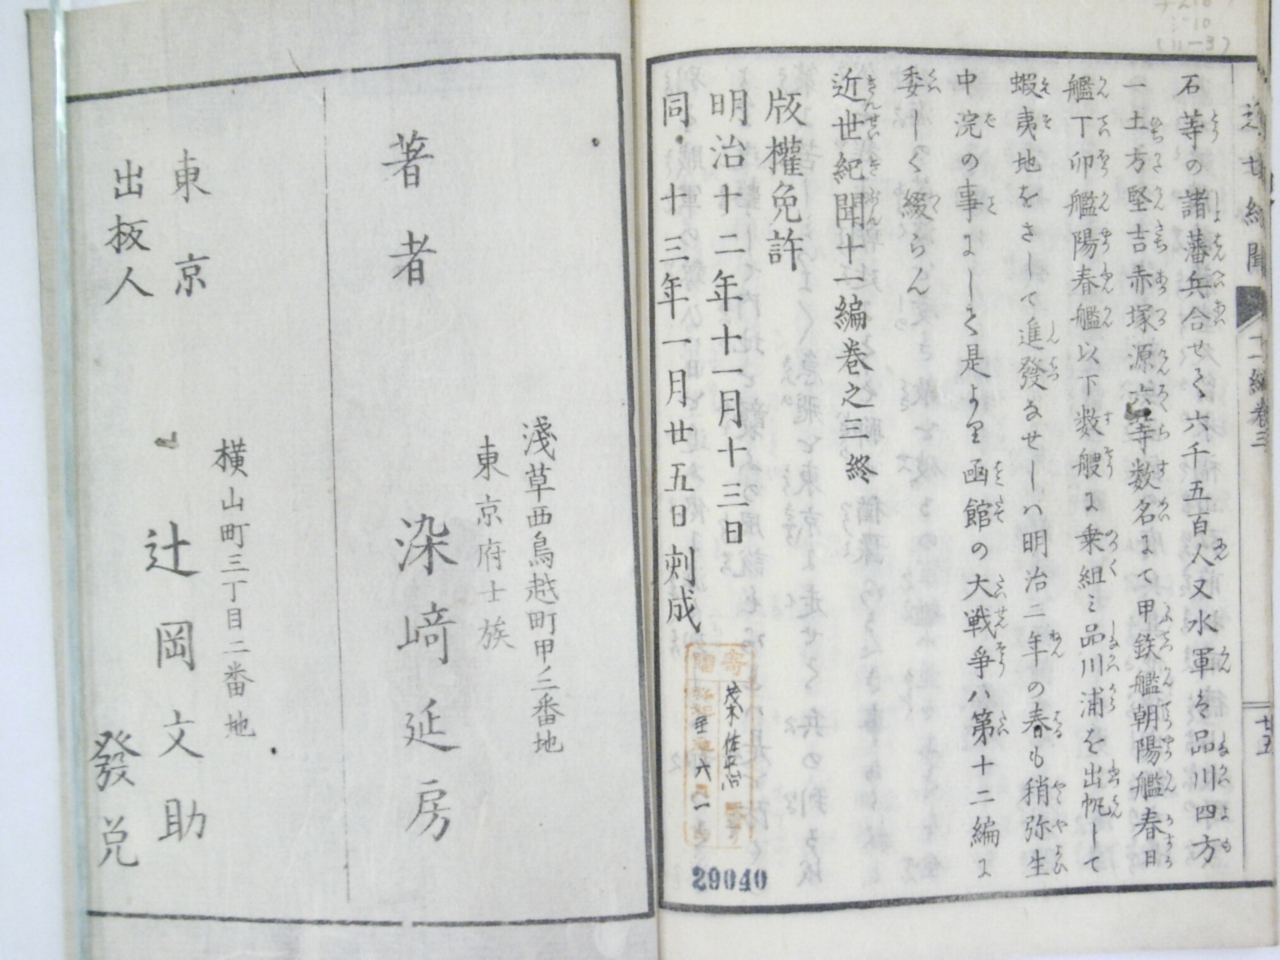 石等の諸藩兵合せて六千五百人又水軍は品川四方
一土方堅吉赤塚源六等数名にて甲鉄艦朝陽艦春日
艦丁卯艦陽春艦以下数艘に乗組ミ品川浦を出帆して
蝦夷地をさして進發なせしハ明治二年の春も稍弥生
中浣の事にして是より函館の大戦争ハ第十二編に
委しく綴らん
近世紀聞十一編巻之三終
版權免許
明治十二年十一月十三日
同十三年一月廿五日刺成
29040
近世紀聞
十一編巻三
廿五
淺草西鳥越町甲二番地
東京府士族
著者 染﨑延房
東京
横山町三丁目二番地
出板人 辻岡文助
發兑